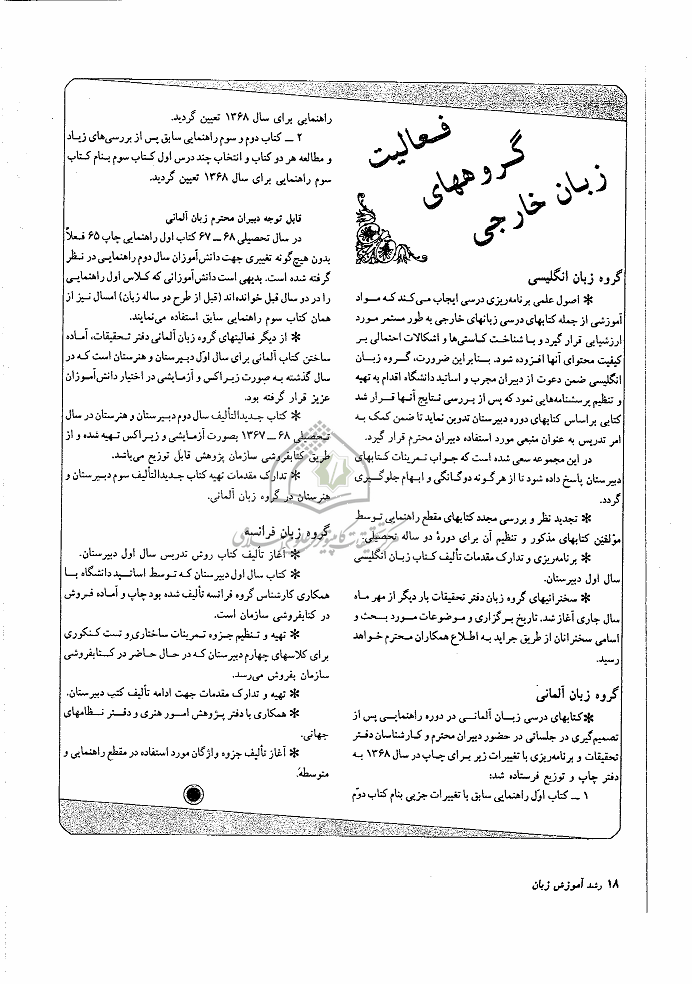 فعالیت
گروههای
زبان خارجی
گروه زبان انگلیسی
✻ اصول علمی برنامه‌ریزی درسی ایجاب می‌کند که مواد
آموزشی از جمله کتابهای درسی زبانهای خارجی به طور مستمر مورد
ارزشیابی قرار گیرد و با شناخت کاستی‌ها و اشکالات احتمالی بر
کیفیت محتوای آنها افزوده شود. بنابراین ضرورت، گروه زبان
انگلیسی ضمن دعوت از دبیران مجرب و اساتید دانشگاه اقدام به تهیه
و تنظیم پرسشنامه‌هایی نمود که پس از بررسی نتایج آنها قرار شد
کتابی براساس کتابهای دوره دبیرستان تدوین نماید تا ضمن کمک به
امر تدریس به عنوان منبعی مورد استفاده دبیران محترم قرار گیرد.
در این مجموعه سعی شده است که جواب تمرینات کتابهای
دبیرستان پاسخ داده شود تا از هرگونه دوگانگی و ابهام جلوگیری
گردد.
✻ تجدید نظر و بررسی مجدد کتابهای مقطع راهنمایی توسط
مؤلفین کتابهای مذکور و تنظیم آن برای دورهٔ دو ساله تحصیلی.
✻ برنامه‌ریزی و تدارک مقدمات تألیف کتاب زبان انگلیسی
سال اول دبیرستان.
✻ سخنرانیهای گروه زبان دفتر تحقیقات بار دیگر از مهر ماه
سال جاری آغاز شد. تاریخ برگزاری و موضوعات مورد بحث و
اسامی سخنرانان از طریق جراید به اطلاع همکاران محترم خواهد
رسید.
گروه زبان آلمانی
✻کتابهای درسی زبان آلمانی در دوره راهنمایی پس از
تصمیم‌گیری در جلساتی در حضور دبیران محترم و کارشناسان دفتر
تحقیقات و برنامه‌ریزی با تغییرات زیر برای چاپ در سال ۱۳۶۸ به
دفتر چاپ و توزیع فرستاده شد:
۱ ــ کتاب اول راهنمایی سابق با تغییرات جزیی بنام کتاب دوّم
راهنمایی برای سال ۱۳۶۸ تعیین گردید.
۲ ــ کتاب دوم و سوم راهنمایی سابق پس از بررسی‌های زیاد
و مطالعه هر دو کتاب و انتخاب چند درس اول کتاب سوم بنام کتاب
سوم راهنمایی برای سال ۱۳۶۸ تعیین گردید.
قابل توجه دبیران محترم زبان آلمانی
در سال تحصیلی ۶۸ ــ ۶۷ کتاب اول راهنمایی چاپ ۶۵ فعلاً
بدون هیچ‌گونه تغییری جهت دانش‌آموزان سال دوم راهنمایی در نظر
گرفته شده است. بدیهی است دانش‌آموزانی که کلاس اول راهنمایی
را در دو سال قبل خوانده‌اند (قبل از طرح دو ساله زبان) امسال نیز از
همان کتاب سوم راهنمایی سابق استفاده می‌نمایند.
✻ از دیگر فعالیتهای گروه زبان آلمانی دفتر تحقیقات، آماده
ساختن کتاب آلمانی برای سال اول دبیرستان و هنرستان است که در
سال گذشته به صورت زیراکس و آزمایشی در اختیار دانش‌آموزان
عزیز قرار گرفته بود.
✻ کتاب جدیدالتألیف سال دوم دبیرستان و هنرستان در سال
تحصیلی ۶۸ ــ ۱۳۶۷ بصورت آزمایشی و زیراکس تهیه شده و از
طریق کتابفروشی سازمان پژوهش قابل توزیع می‌باشد.
✻ تدارک مقدمات تهیه کتاب جدیدالتألیف سوم دبیرستان و
هنرستان در گروه زبان آلمانی.
گروه زبان فرانسه
✻ آغاز تألیف کتاب روش تدریس سال اول دبیرستان.
✻ کتاب سال اول دبیرستان که توسط اساتید دانشگاه با
همکاری کارشناس گروه فرانسه تألیف شده بود چاپ و آماده فروش
در کتابفروشی سازمان است.
✻ تهیه و تنظیم جزوه تمرینات ساختاری و تست کنکوری
برای کلاسهای چهارم دبیرستان که در حال حاضر در کتابفروشی
سازمان بفروش می‌رسد.
✻ تهیه و تدارک مقدمات جهت ادامه تألیف کتب دبیرستان.
✻ همکاری با دفتر پژوهش امور هنری و دفتر نظامهای
جهانی.
✻ آغاز تألیف جزوه واژگان مورد استفاده در مقطع راهنمایی و
متوسطه.
۱۸ رشد آموزش زبان